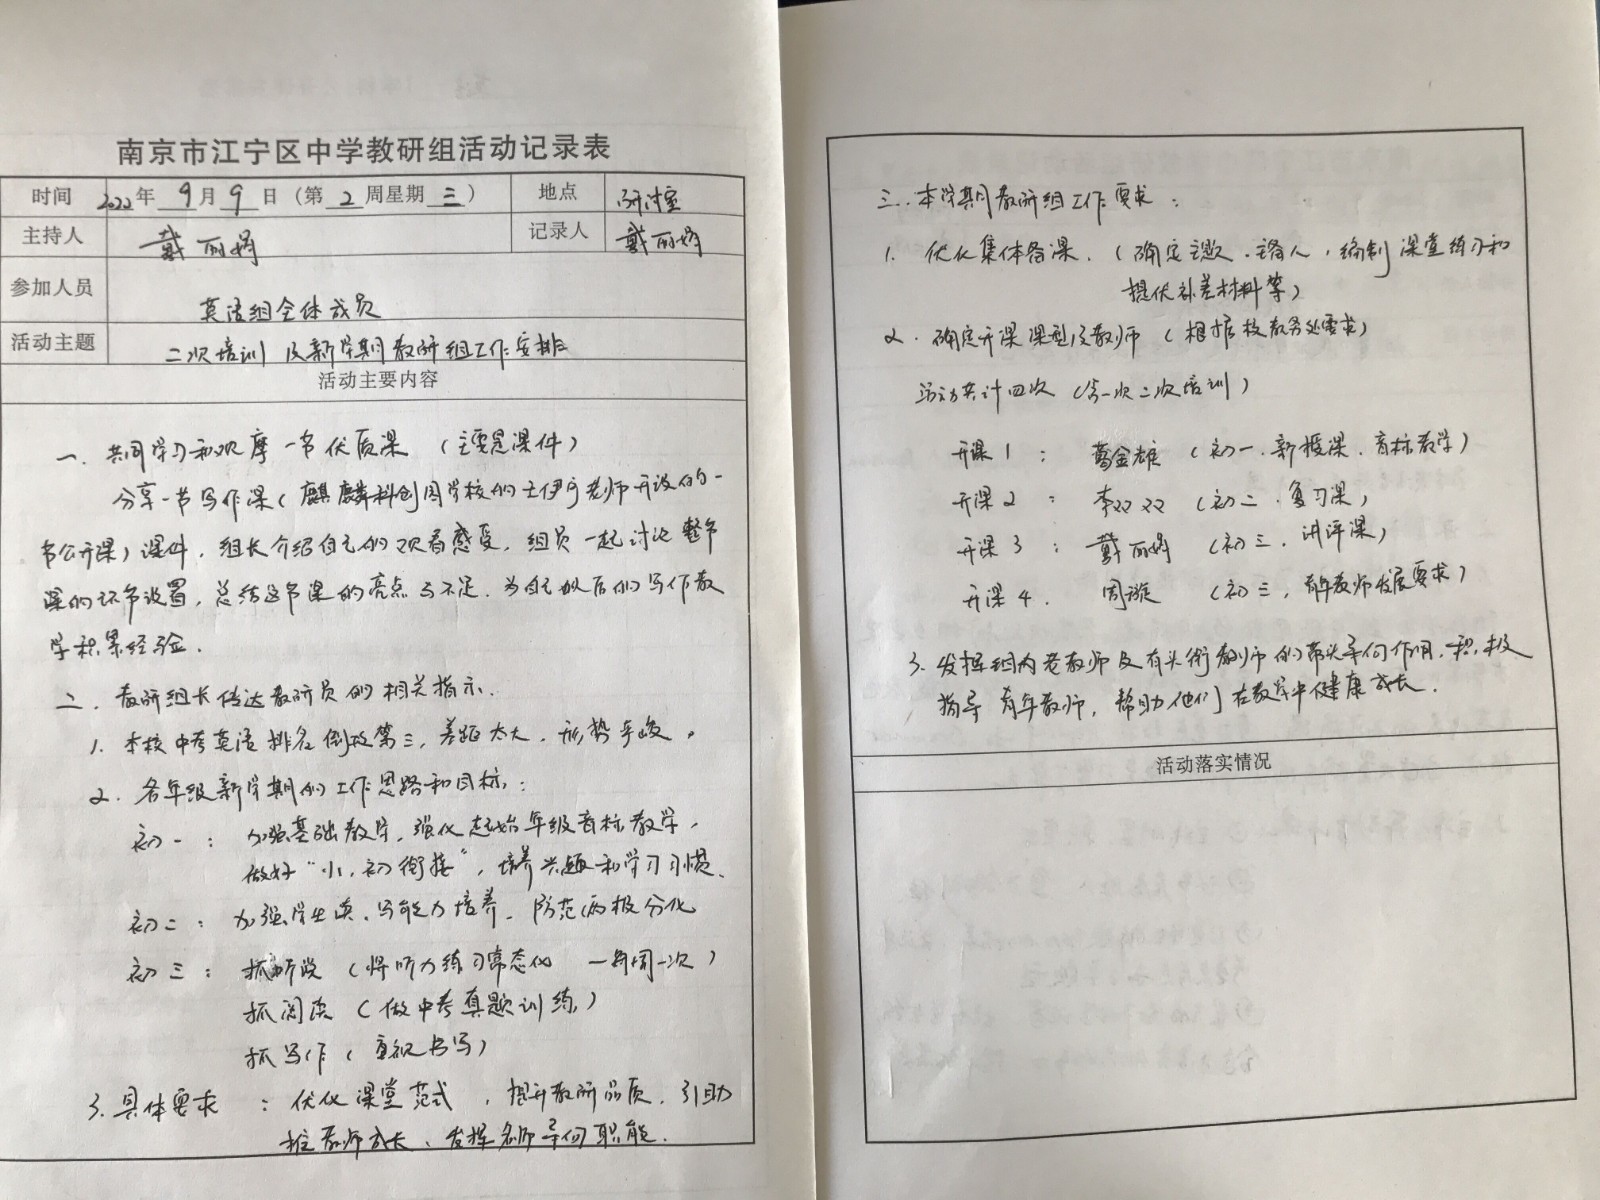 南京市江宁区中学教研组活动记录表
时间 2022年 9 月 9 日（第 2 周星期 三） 地点 研讨室
主持人 戴丽娟 记录人 戴丽娟
参加人员 英语组全体成员
活动主题 二次培训及新学期教研组工作安排
活动主要内容
一. 共同学习和观摩一节优质课（主要是课件）
分享一节写作课（麒麟科创园学校的 老师开设的一
节公开课）课件，组长介绍自己的观看感受，组员一起讨论整节
课的环节设置，总结这节课的亮点与不足，为自己以后的写作教
学积累经验.
二. 教研组长传达教研员的相关指示.
1. 本校中考英语排名倒数第三，差距太大，形势严峻。
2. 各年级新学期的工作思路和目标：
初一： 加强基础教学，强化起始年级音标教学，
做好“小、初衔接”，培养兴趣和学习习惯.
初二： 加强学生读、写能力培养，防范两极分化
初三： 抓听说（将听力练习常态化 一每周一次）
抓阅读（做中考真题训练）
抓写作（重视书写）
3. 具体要求： 优化课堂范式，提升教研品质，引助
推教师成长，发挥名师导向职能.
三. 本学期教研组工作要求：
1. 优化集体备课.（确定主题、主备人，编制课堂练习和
提优补差材料等）
2. 确定开课课型及教师（根据校教务处要求）
活动共计四次（含一次二次培训）
开课1： 葛金雄（初一、新授课、音标教学）
开课2： 李双双（初二、复习课）
开课3： 戴丽娟（初三、讲评课）
开课4. 周璇（初三，青年教师发展要求）
3. 发挥组内老教师及有头衔教师的带头导向作用，积极
指导青年教师，帮助他们在教学中健康成长.
活动落实情况